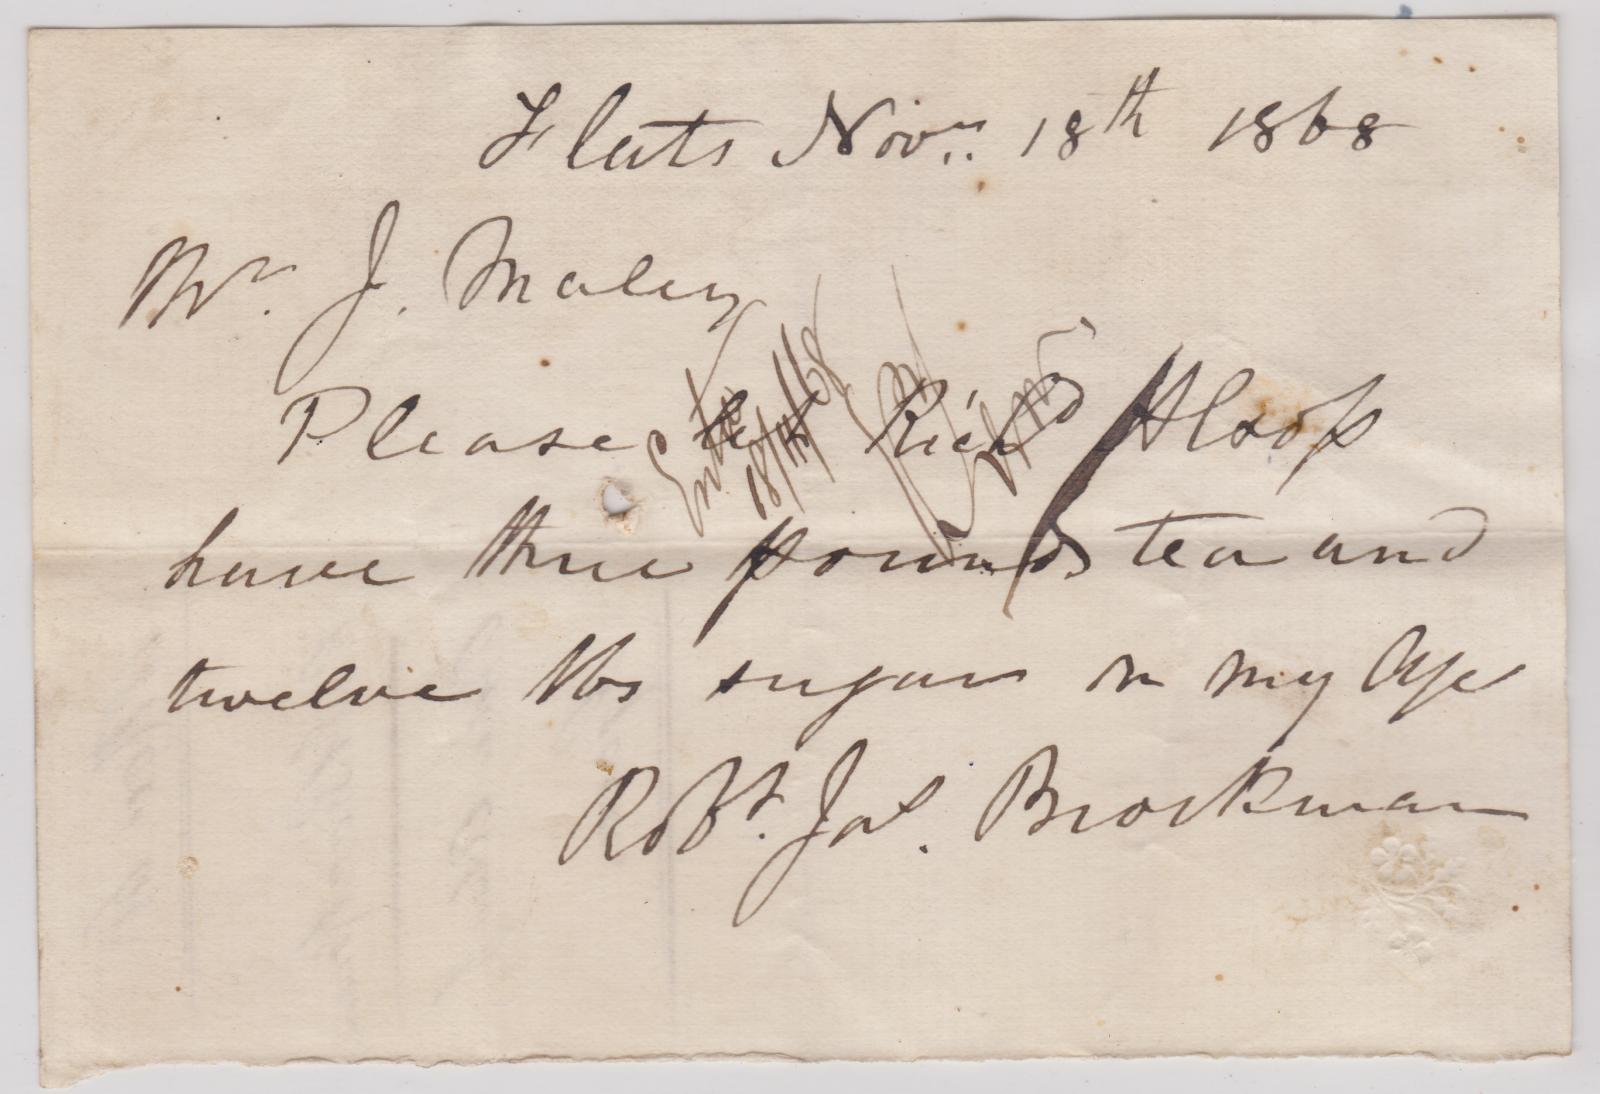 Flats Novr. 18th 1868
Mr. J. Maley
Please let Richd Aloof
have three pounds tea and
twelve lbs sugar on my a/c
Robt. Jas. Brockman
Entd
18/11/68